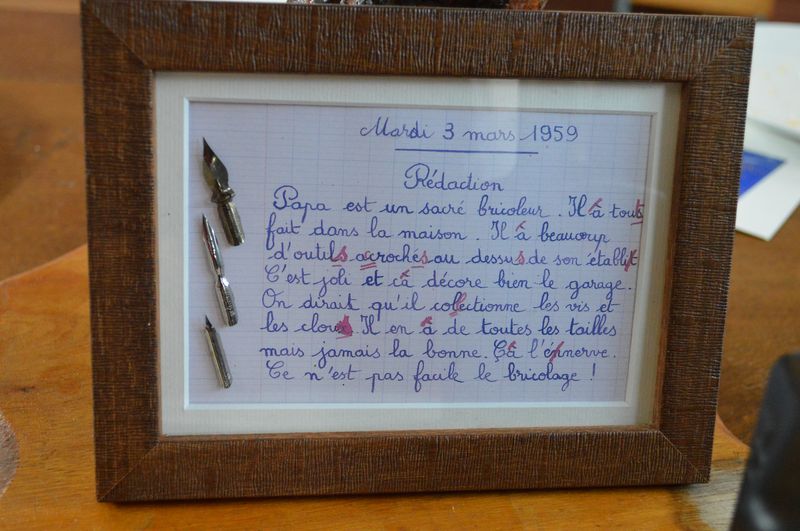 Mardi 3 mars 1959
Rédaction
Papa est un sacré bricoleur. Il â touts
fait dans la maison. Il â beaucoup
d'outils acrochés au dessus de son établit
C'est joli et câ décore bien le garage.
On dirait qu'il collectionne les vis et
les clous. Il en â de toutes les tailles
mais jamais la bonne. Çâ l'énnerve.
Ce n'est pas facile le bricolage !